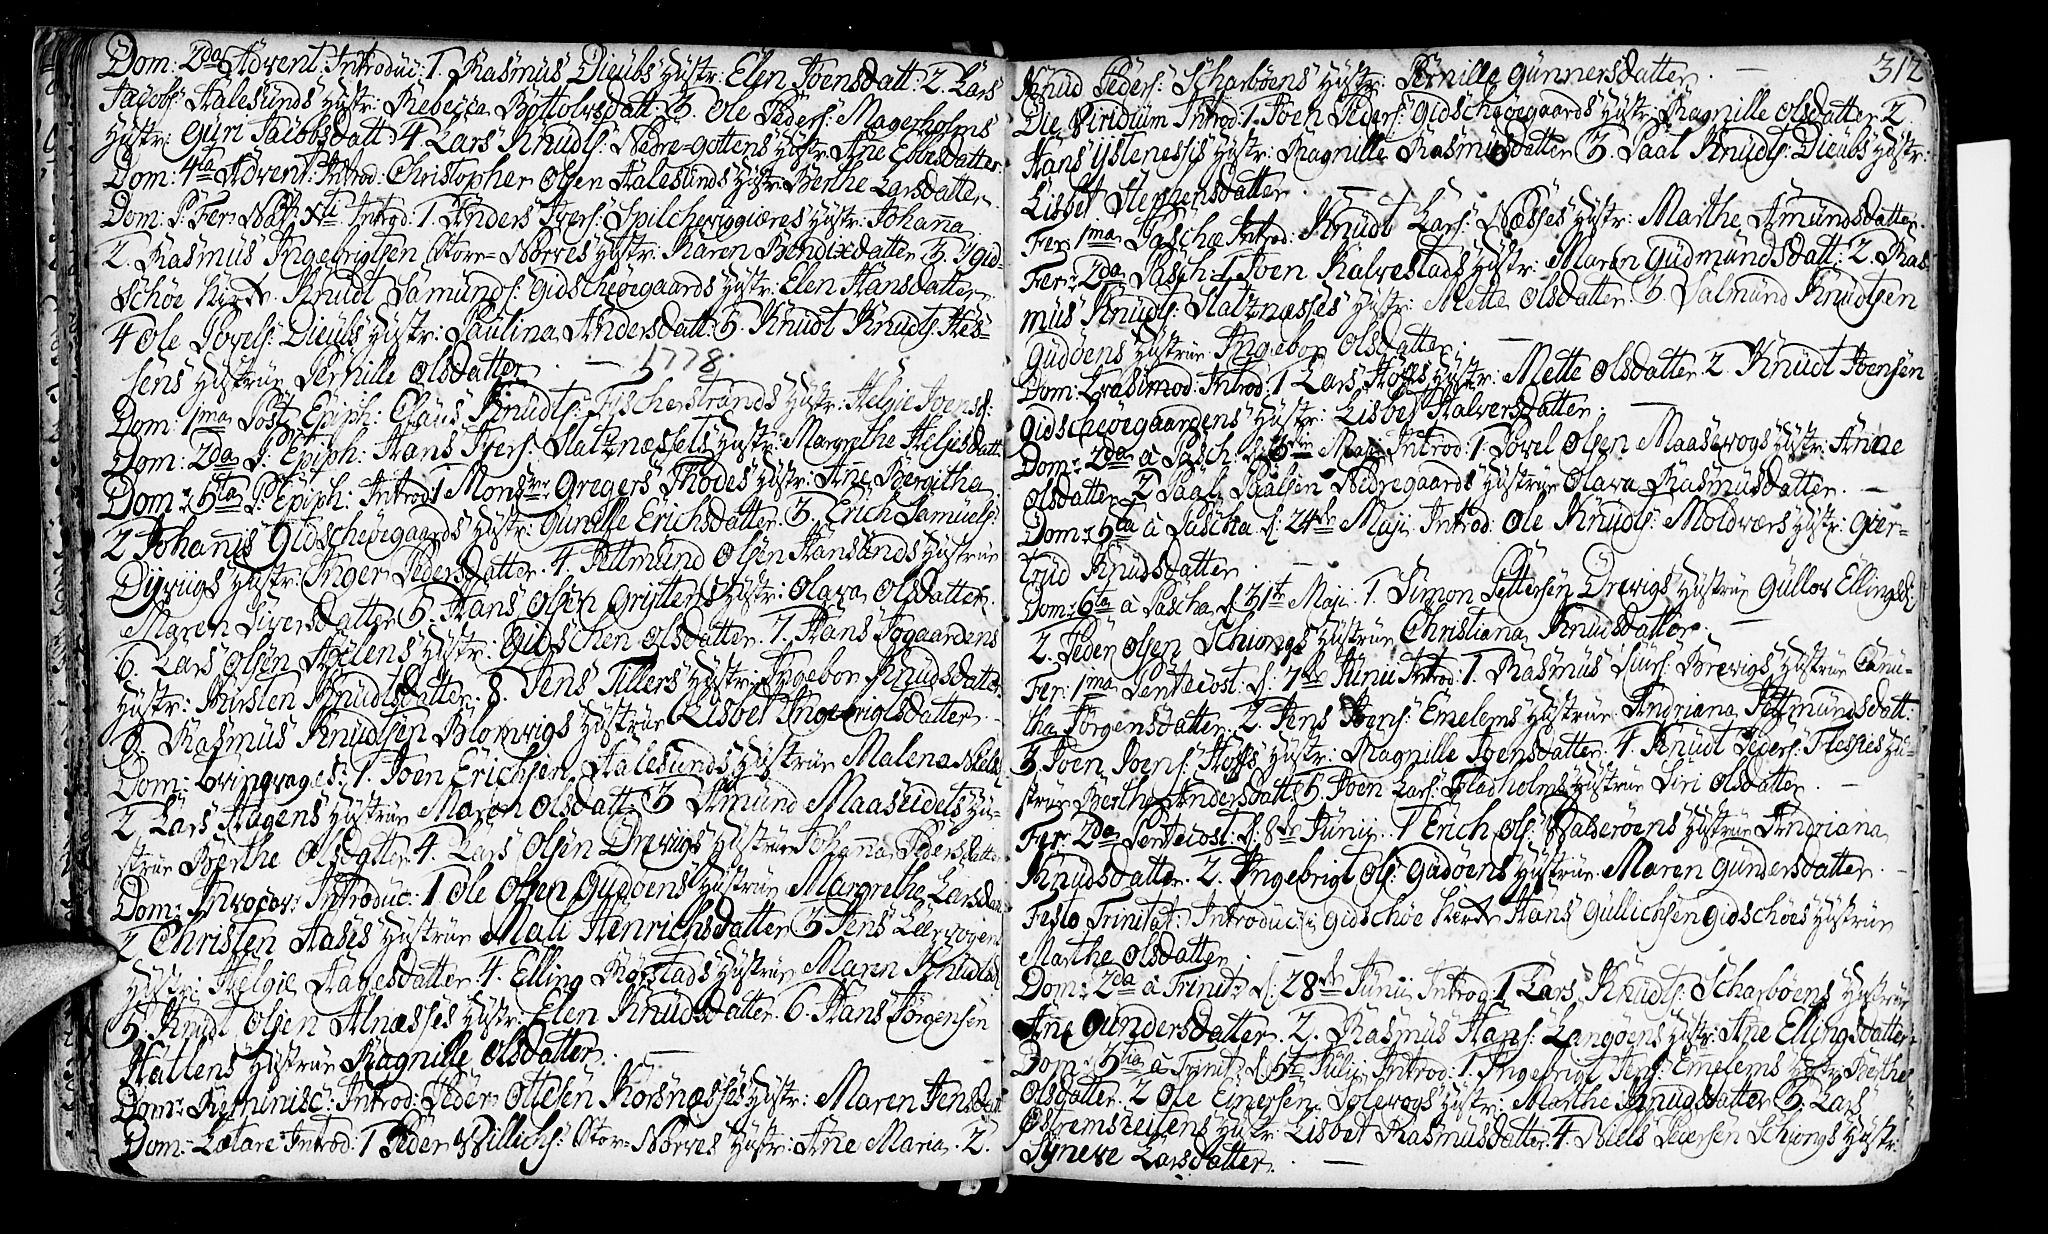 Dom: 2da Advent. Introduc: 1. Rasmus Dieubs Hystr: Elen Joensdatt: 2. Lars
Jacobs: Aalesunds Hystr: Rebecca Bottolvsdatt: 3. Ole Peders: Magerholms
Hystr: Guri Jacobsdatt: 4. Lars Knuds: Nedre-Gottens Hystr: Ane Ebbesdatter.
Dom: 4ta Advent: Introd: Christopher Olsen Aalesunds Hystr: Berthe Larsdatter.
Dom: P: Fer: Nath: Xti Introd: 1. Anders Ivers: Spilcheviggiæres Hystr: Johana
2. Rasmus Ingebrigtsen Store-Nørves Hystr: Karen Bendixdatter 3. I Gid-
schøe Kirke. Knudt Samunds: Gidscheøegaards Hystr: Elen Hansdatter.
4 Ole Povels: Dieubs Hystr: Paulina Andersdatt: 5. Knudt Knuds: Hes-
sens Hystrue Pernille Olsdatter. — 1778.
Dom: 1ma Post Epiph: Claus Knudts: Fischerstrands Hystr: Helgie Joensd:
Dom: 2da P: Epiph: Hans Ivers: Slatznessets Hystr: Margrethe Helgesdatt.
Dom: 5ta P: Epiph: Introd: 1 Monsr Gregers Thodes Hystr: Ane Bergitha
2 Johanis Gidscheøegaards Hystr: Gunille Erichsdatter. 3. Erich Samuels:
Dyrviigs Hystr: Inger Pedersdatter. 4. Feltmund Olsen Hanslands Hystrue
Maren Siversdatter 5. Hans Olsen Gryttens Hystr: Olava Olsdatter.
6. Lars Olsen Aarlens Hystr: Gidschen Olsdatter. 7. Hans Iøgaardens
Hystr: Kirsten Knudtsdatter. 8. Jens Tillers Hystr: Ingebor Knudsdatter
9. Rasmus Knudsen Blomvigs Hystrue Lisbet Ingebrigtsdatter.
Dom: 1. Joen Erichsen Aalesunds Hystrue Malena Nielsd
2 Lars Hagens Hystrue Maren Olsdatt: 3 Amund Maaseidets Hy-
strue Berthe Olsdatter 4. Lars Olsen Drevigs Hystrue Johana Pedersdatter
Dom: Invocav: Introduc: 1 Ole Olsen Gudøens Hystrue Margrethe Larsdat
2 Christen Aases Hystrue Mali Henrichsdatter 3 Jens Leervogens
Hystr: Helgie Aagesdatter. 4. Elling Røestads Hystrue Maren Knudsd
5. Knudt Olsen Alnæsses Hystr: Elen Knudsdatter. 6. Hans Jørgensen
Hatlens Hystrue Ragnille Olsdatter. —
Dom: Reminisc: Introd: Peder Ottesen Korsnæsses Hystr: Maren Jensdatt
Dom: Lætare Introd: 1 Peder Willichs: Stor-Nørves Hystr: Ane Maria. 2.
312
Knud Peders: Scharbøens Hystr: Pernille Gunnersdatter. —
Die Viridium Introd: 1. Joen Peders: Gidscheøegaards Hystr: Ragnille Olsdatter 2.
Hans Ystenesses Hystr: Ragnille Rasmusdatter 3. Paal Knudts: Dieubs Hystr:
Lisbet Stephensdatter. —
Fer: 1ma Paschæ Introd: Knudt Lars: Næsses Hystr: Marthe Amundsdatter.
Fer: 2da Pasch: 1 Joen Kalvestads Hystr: Maren Gudmundsdatt: 2. Ras-
mus Knudts: Slatznæsses Hystr: Mette Olsdatter 3. Salmund Knudtsen
Gudøens Hystrue Ingebor Olsdatter. —
Dom: Qvasimod: Introd: 1 Lars Hoffs Hystr: Mette Olsdatter 2. Knudt Joensen
Gidscheøegaardens Hystr: Lisbet Halversdatter. —
Dom: 2da a Pasch: d: 3die Maji Introd: 1 Povel Olsen Maasevogs Hystr: Anne
Olsdatter 2 Paal Paalsen Nedregaards Hystrue Olava Rasmusdatter. —
Dom: 5ta a Pascha d: 24de Maji Introd: Ole Knuds: Moldværs Hystr: Gier-
trud Knudsdatter. —
Dom: 6ta a Pascha d: 31te Maji. 1. Simon Pettersen Drevigs Hystrue Gullov Ellingsd:
2. Peder Olsen Schiongs Hystrue Christiana Knudsdatter.
Fer: 1ma Pentecost: d: 7de Junii Introd: 1. Rasmus Siurs: Brevigs Hystrue Canu-
tha Jørgensdatter. 2. Jens Joens: Emelems Hystrue Andriana Feltmundsdatt:
3 Joen Joens: Hoffs Hystr: Magnille Joensdatter. 4. Knudt Peders: Flessies Hy-
strue Berthe Andersdatt: 5. Joen Lars: Fladholms Hystrue Siri Olsdatter. —
Fer: 2da Pentecost: d: 8de Junij. 1 Erich Ols: Walderøens Hystrue Andriana
Knudsdatter. 2. Ingebrigt Ols: Gudøens Hystrue Maren Gundersdatter.
Festo Trinitat: Introduc: i Gidschøe Kirke Hans Gullichsen Gidschøes Hystrue
Marthe Olsdatter. —
Dom: 2da a Trinit: d: 28de Junii Introd: 1 Lars Knudts: Scharbøens Hystrue
Ane Gundersdatter. 2. Rasmus Hans: Langøens Hystr: Ane Ellingsdatter
Dom: 3tia a Trinit: d: 5te Julii Introd: 1. Ingebrigt Jens: Emelems Hystr: Berthe
Olsdatter. 2 Ole Einersen Solevogs Hystr: Marthe Knudsdatter 3. Lars
Østremsteilens Hystr: Lisbet Rasmusdatter. 4. Niels Peiersen Schiongs Hystr:
Synneve Larsdatter. —